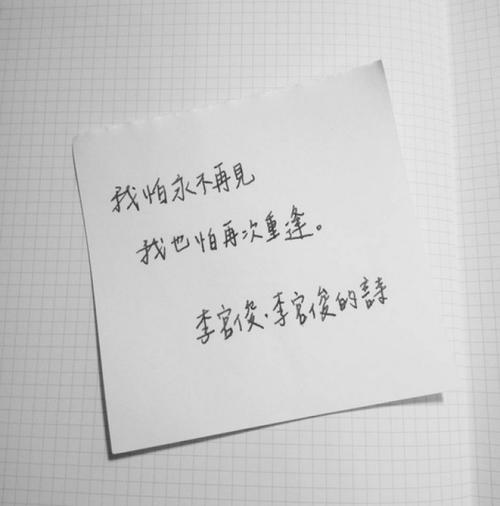 我怕永不再見
我也怕再次重逢。
李宮俊·李宮俊的詩